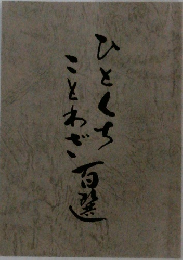 ひとくち
ことわざ百選